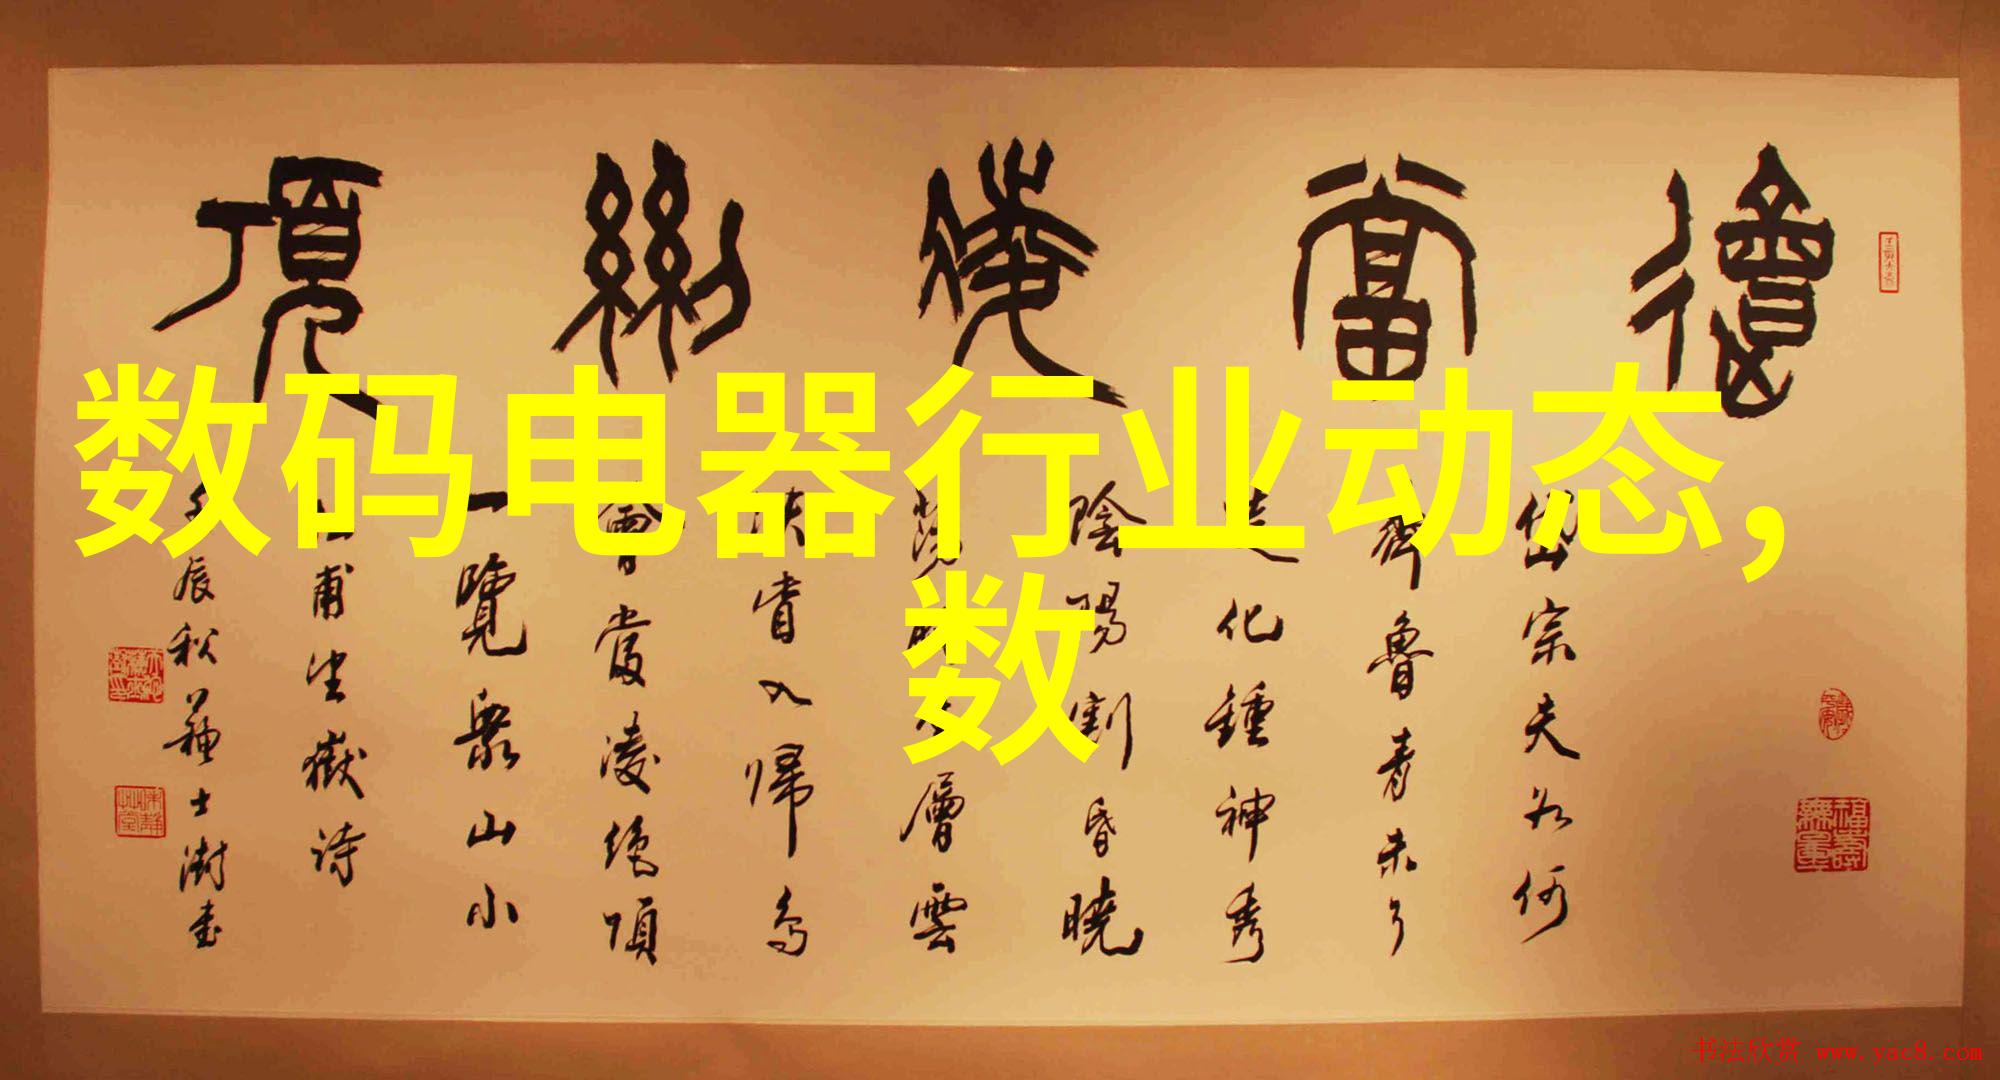 會當凌絕頂
岱宗夫如何
齊魯青未了
造化鍾神秀
陰陽割昏曉
蕩胸生層雲
決眥入歸鳥
會當凌絕頂
一覽眾山小
杜甫望嶽詩
壬辰秋蘇士澍書
数码电器行业动态,
数
福壽無量
书法欣赏 www.yac8.com